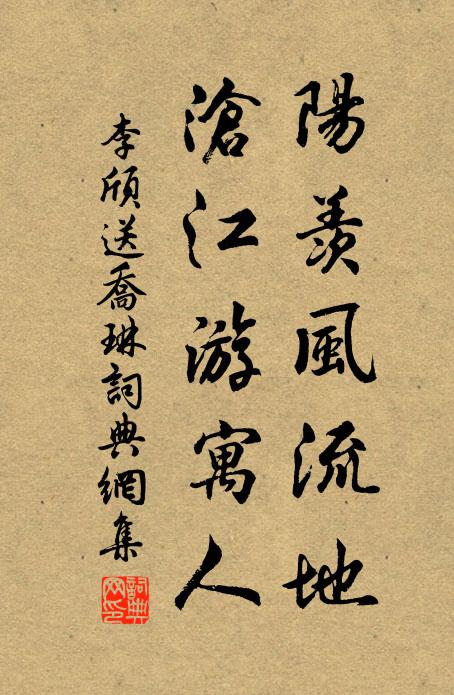 陽羨風流地
滄江游寓人
李頎送喬琳詞典網集
詞典網印